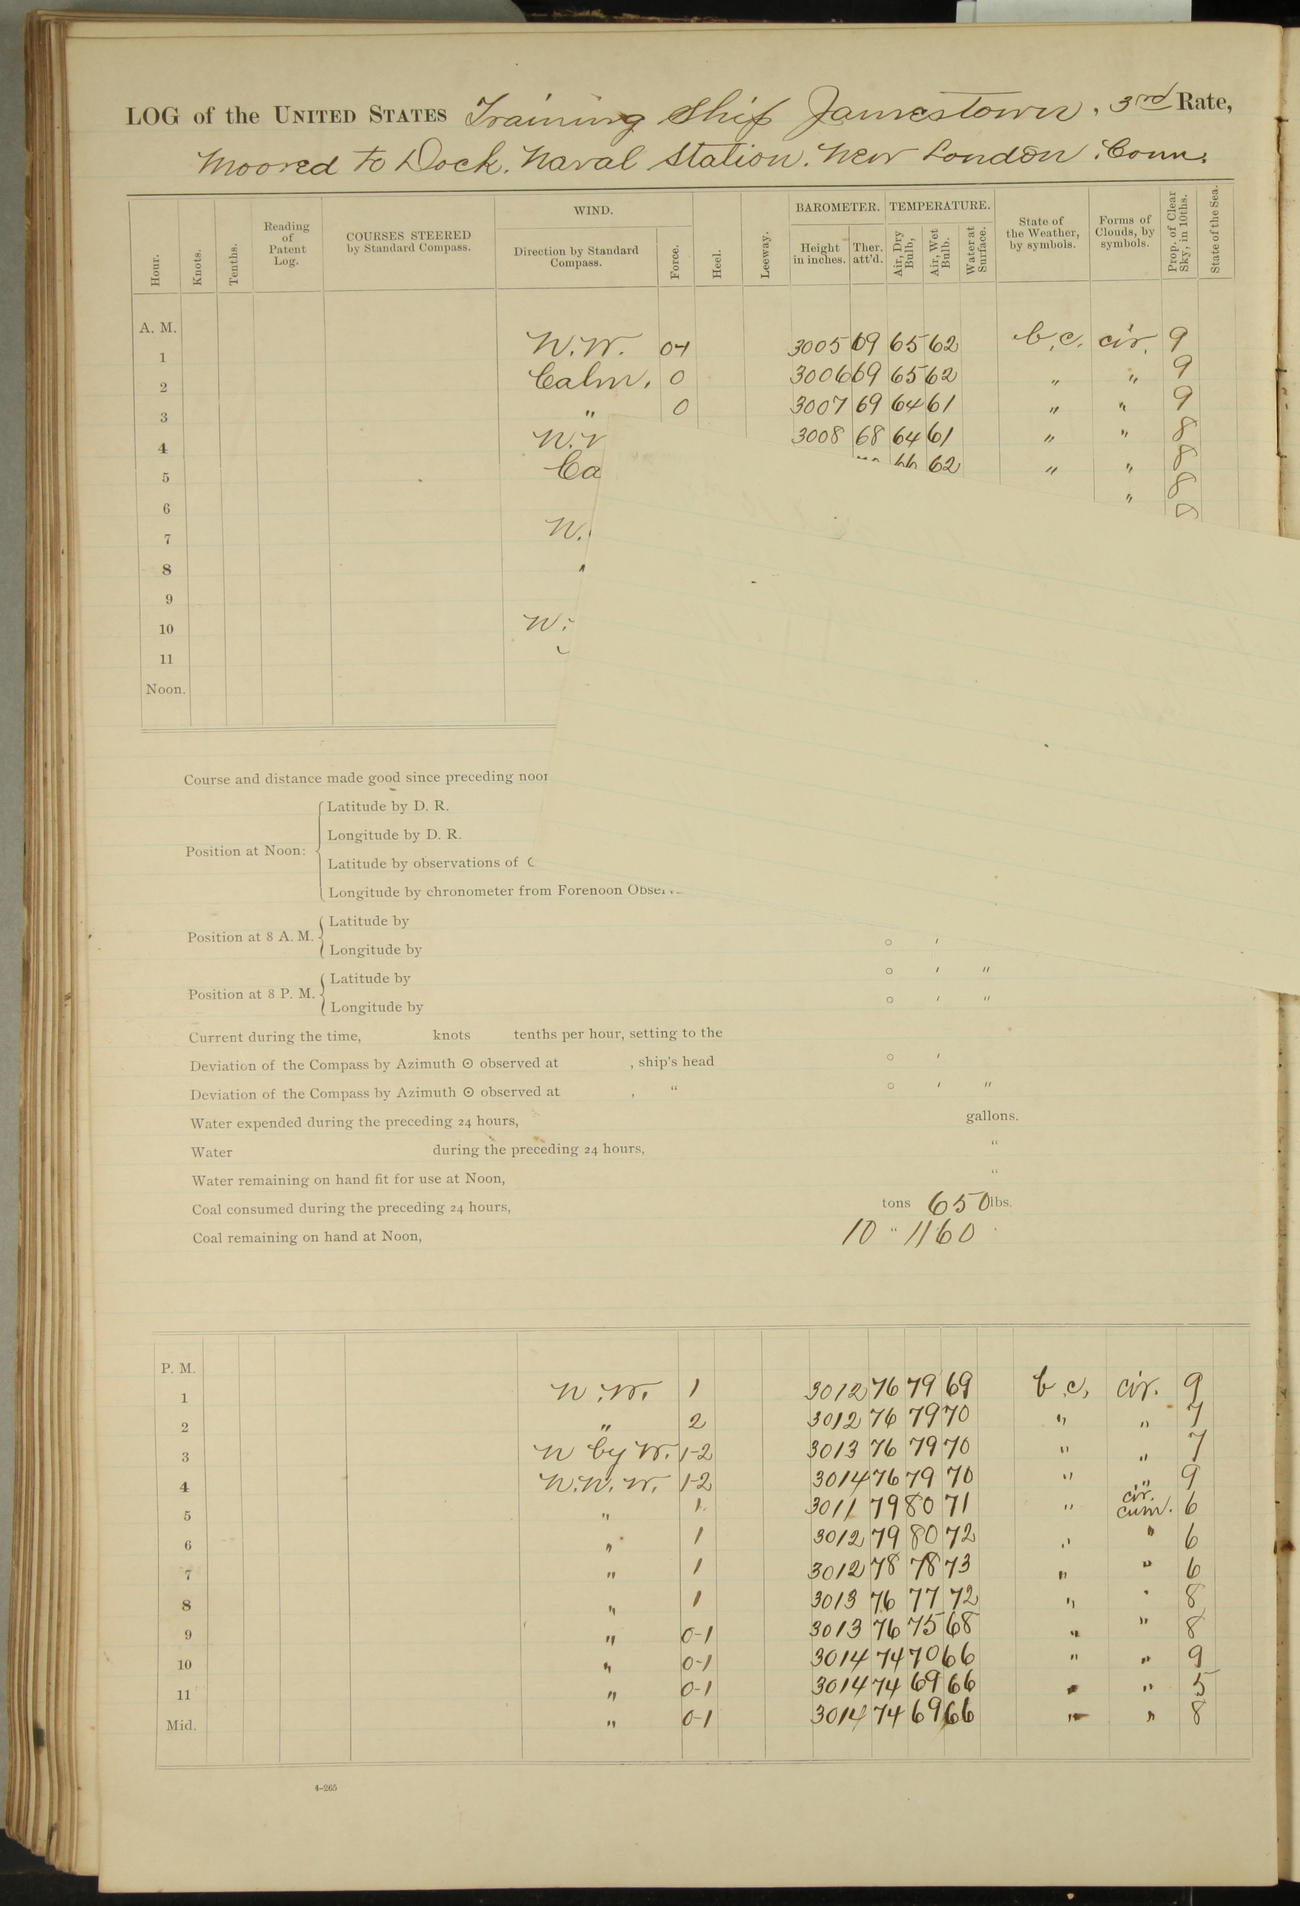 LOG of the UNITED STATES Training Ship Jamestown, 3rd Rate,
Moored to Dock. Naval Station. New London. Conn.
Hour. Knots. Tenths. Reading of Patent Log. COURSES STEERED by Standard Compass. WIND. Direction by Standard Compass. Force. Heel. Leeway. BAROMETER. Height in inches. Ther. att'd. TEMPERATURE. Air, Dry Bulb, Air, Wet Bulb. Water at Surface. State of the Weather, by symbols. Forms of Clouds, by symbols. Prop. of Clear Sky, in 10ths. State of the Sea.
A. M.
1 N.W. 0-1 3005 69 65 62 b.c. cir. 9
2 Calm. 0 3006 69 65 62 " " 9
3 " 0 3007 69 64 61 " " 9
4 3008 68 64 61 " " 8
5 Ca 66 62 " " 8
6 " 8
7 N.
8
9
10 N.
11
Noon.
Course and distance made good since preceding noon
Position at Noon:
Latitude by D. R.
Longitude by D. R.
Latitude by observations of
Longitude by chronometer from Forenoon Obser
Position at 8 A. M.
Latitude by
Longitude by ° ′
Position at 8 P. M.
Latitude by ° ′ ″
Longitude by ° ′ ″
Current during the time, knots tenths per hour, setting to the
Deviation of the Compass by Azimuth ⊙ observed at , ship's head ° ′
Deviation of the Compass by Azimuth ⊙ observed at , " ° ′ ″
Water expended during the preceding 24 hours, gallons.
Water during the preceding 24 hours, "
Water remaining on hand fit for use at Noon, "
Coal consumed during the preceding 24 hours, tons 650 lbs.
Coal remaining on hand at Noon, 10 " 1160
P. M.
1 N.W. 1 3012 76 79 69 b.c. cir. 9
2 " 2 3012 76 79 70 " " 7
3 N by W. 1-2 3013 76 79 70 " " 7
4 N.N.W. 1-2 3014 76 79 70 " " 9
5 " 1 3011 79 80 71 " cir. cum. 6
6 " 1 3012 79 80 72 " " 6
7 " 1 3012 78 78 73 " " 6
8 " 1 3013 76 77 72 " " 8
9 " 0-1 3013 76 75 68 " " 8
10 " 0-1 3014 74 70 66 " " 9
11 " 0-1 3014 74 69 66 " " 5
Mid. " 0-1 3014 74 69 66 " " 8
4-265